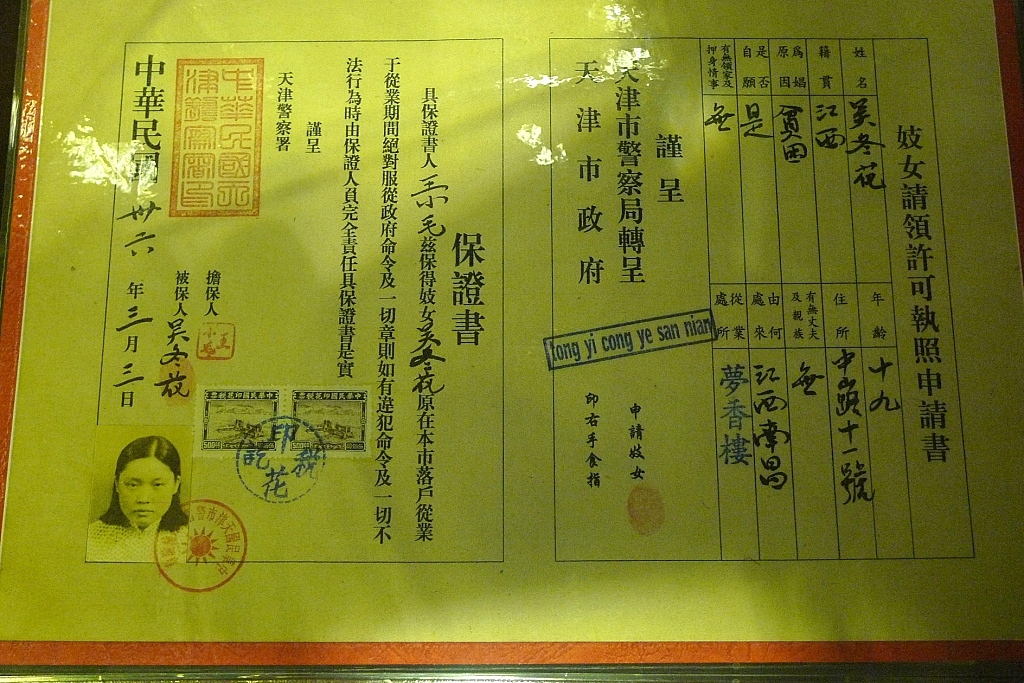 妓女請領許可執照申請書
姓名 吴冬花
年齡 十九
籍貫 江西
住所 中山路十一號
爲娼原因
有無丈夫及親族 無
是否自願 是
由何處來 江西南昌
有無領家及押身情事 無
從業處所 夢香樓
謹呈
天津市警察局轉呈
天津市政府
tong yi cong ye san nian
申請妓女
印右手食指
保證書
具保證書人 王小毛 茲保得妓女 吴冬花 原在本市落戶從業
于從業期間絕對服從政府命令及一切章則如有違犯命令及一切不
法行為時由保證人負完全責任具保證書是實
謹呈
天津警察署
擔保人
王小毛
被保人 吴冬花
中華民國 卅六 年 三 月 三 日
中華民國印花稅票
500
中華民國印花稅票
500
印花稅訖